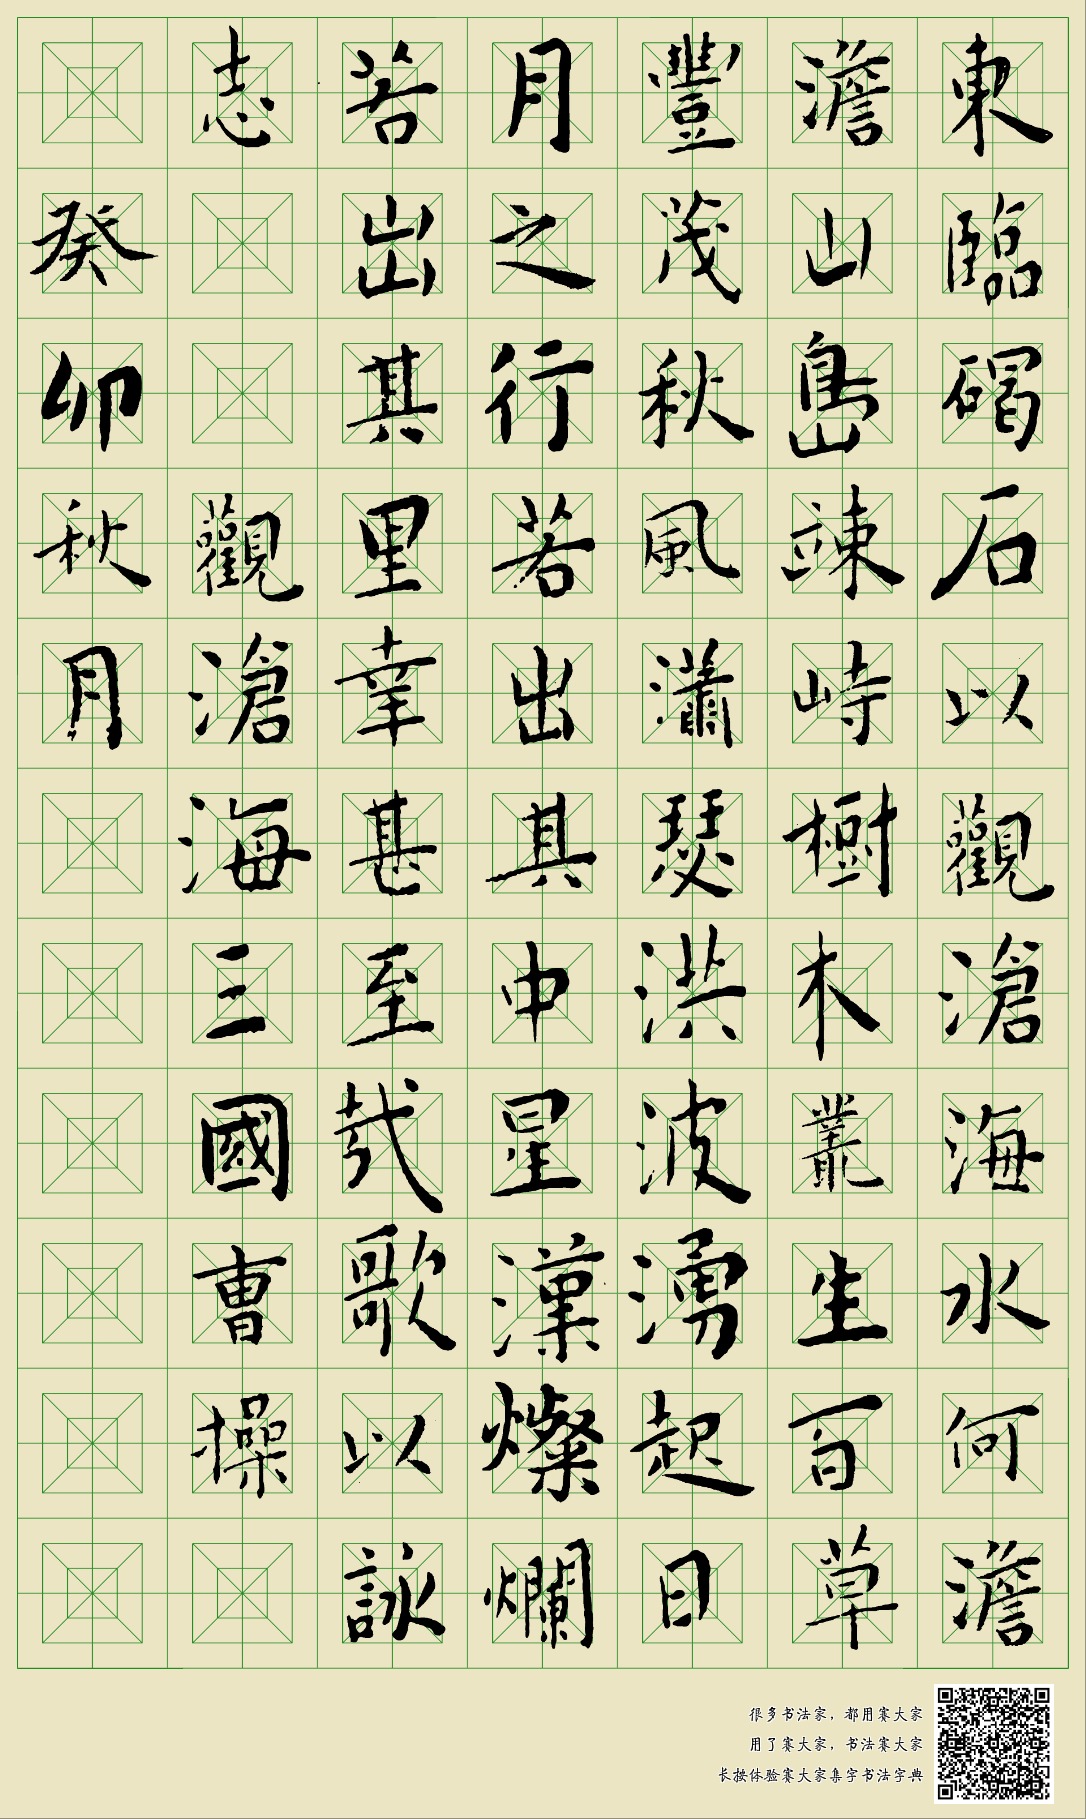 東臨碣石以觀滄海水何澹
澹山島竦峙樹木叢生百草
豐茂秋風瀟瑟洪波湧起日
月之行若出其中星漢燦爛
若出其里幸甚至哉歌以詠
志 觀滄海三國曹操
癸卯秋月
很多书法家，都用赛大家
用了赛大家，书法赛大家
长按体验赛大家集字书法字典